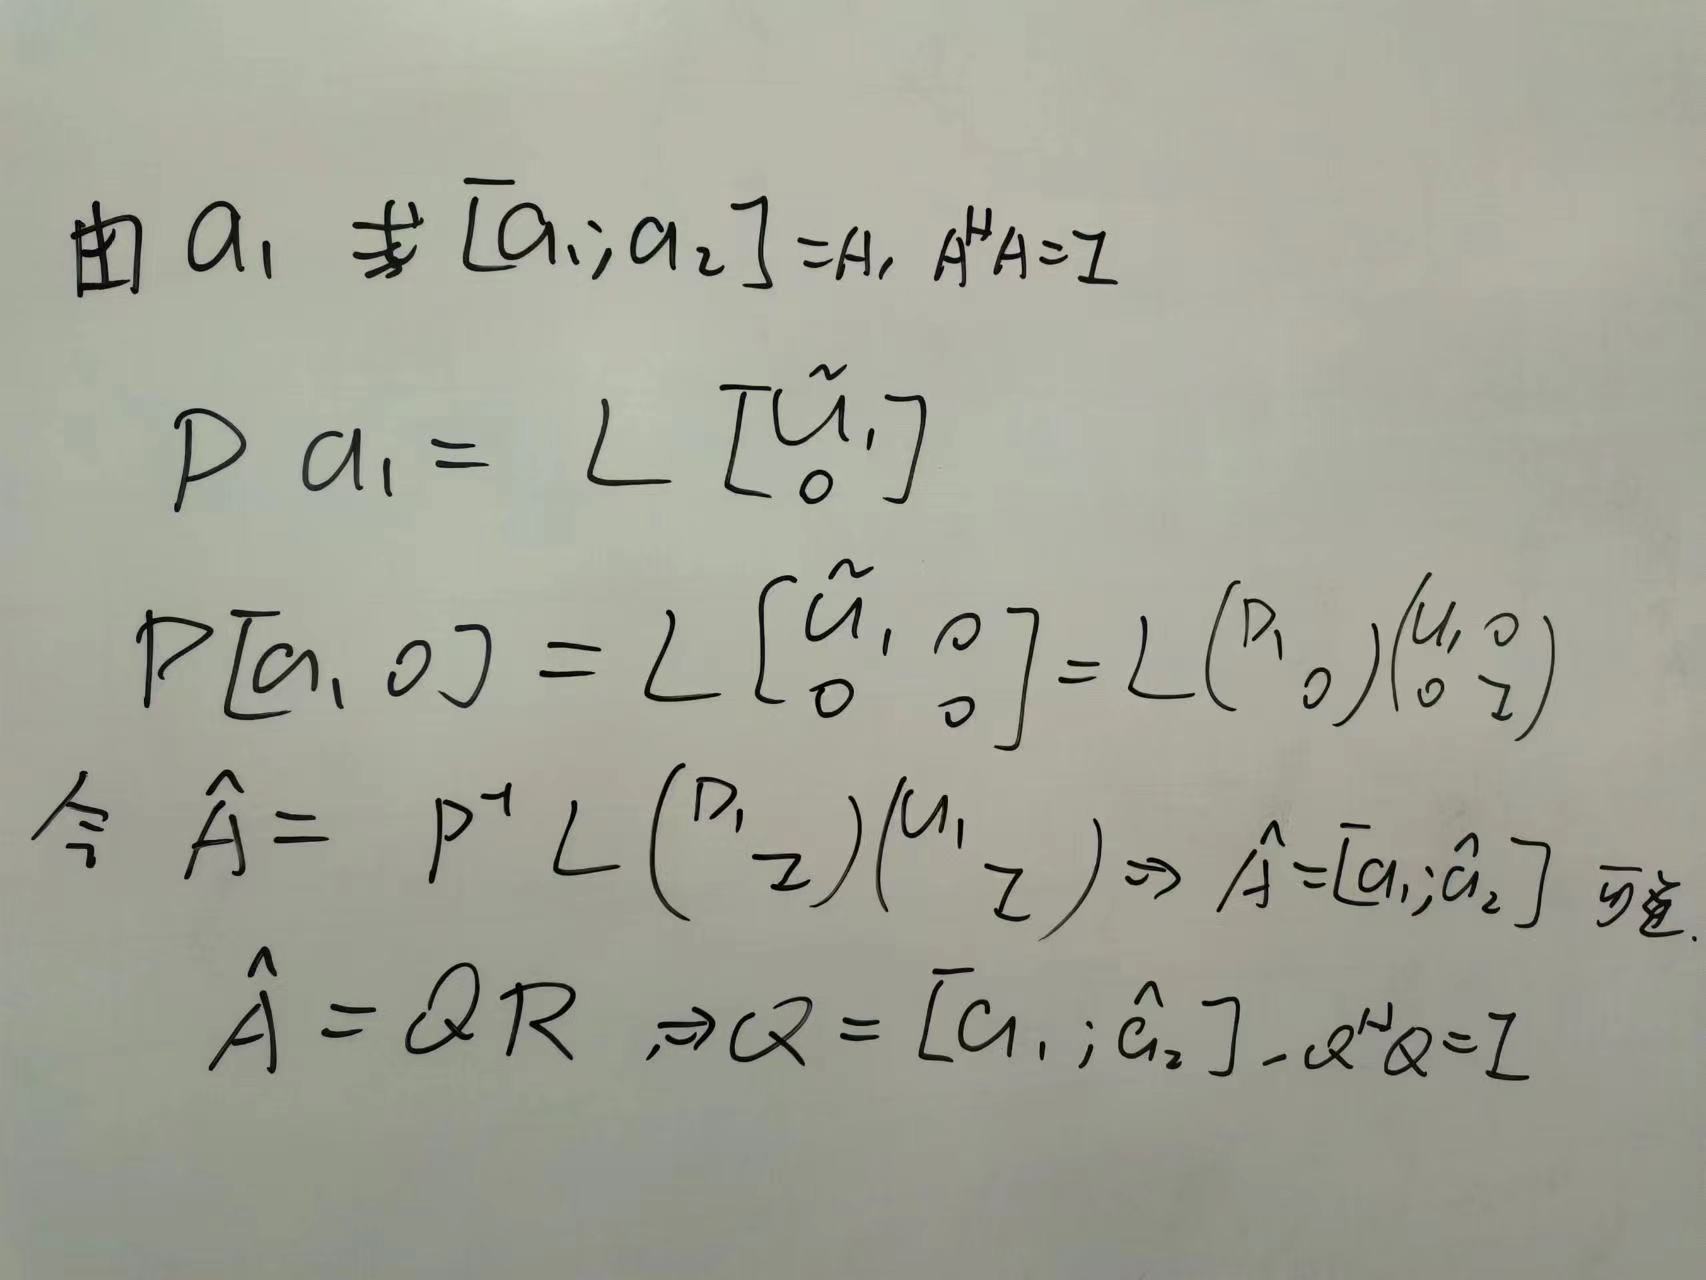 由 a₁ 求 [a₁; a₂] = A, AᴴA = I
P a₁ = L [ũ₁ 0]
P[a₁ 0] = L [ũ₁ 0 0 0] = L (D₁ 0)(U₁ 0 0 I)
令 Â = P⁻¹ L (D₁ I)(U₁ I) ⇒ Â = [a₁; â₂] 可逆.
Â = QR, ⇒ Q = [a₁; â₂] - QᴴQ = I